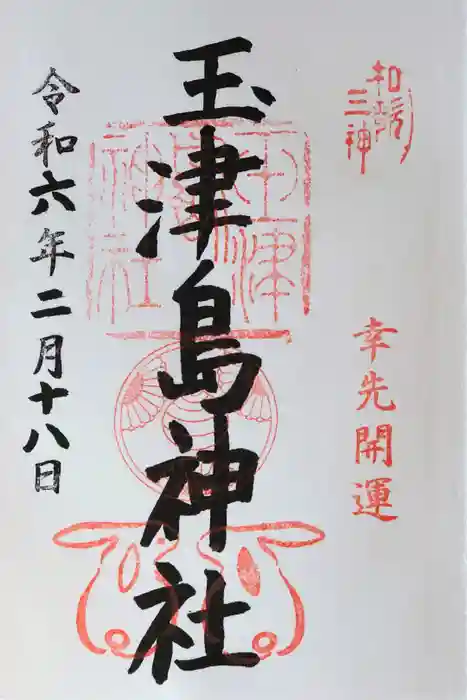 和歌三神
幸先開運
玉津島神社
玉津島神社
令和六年二月十八日